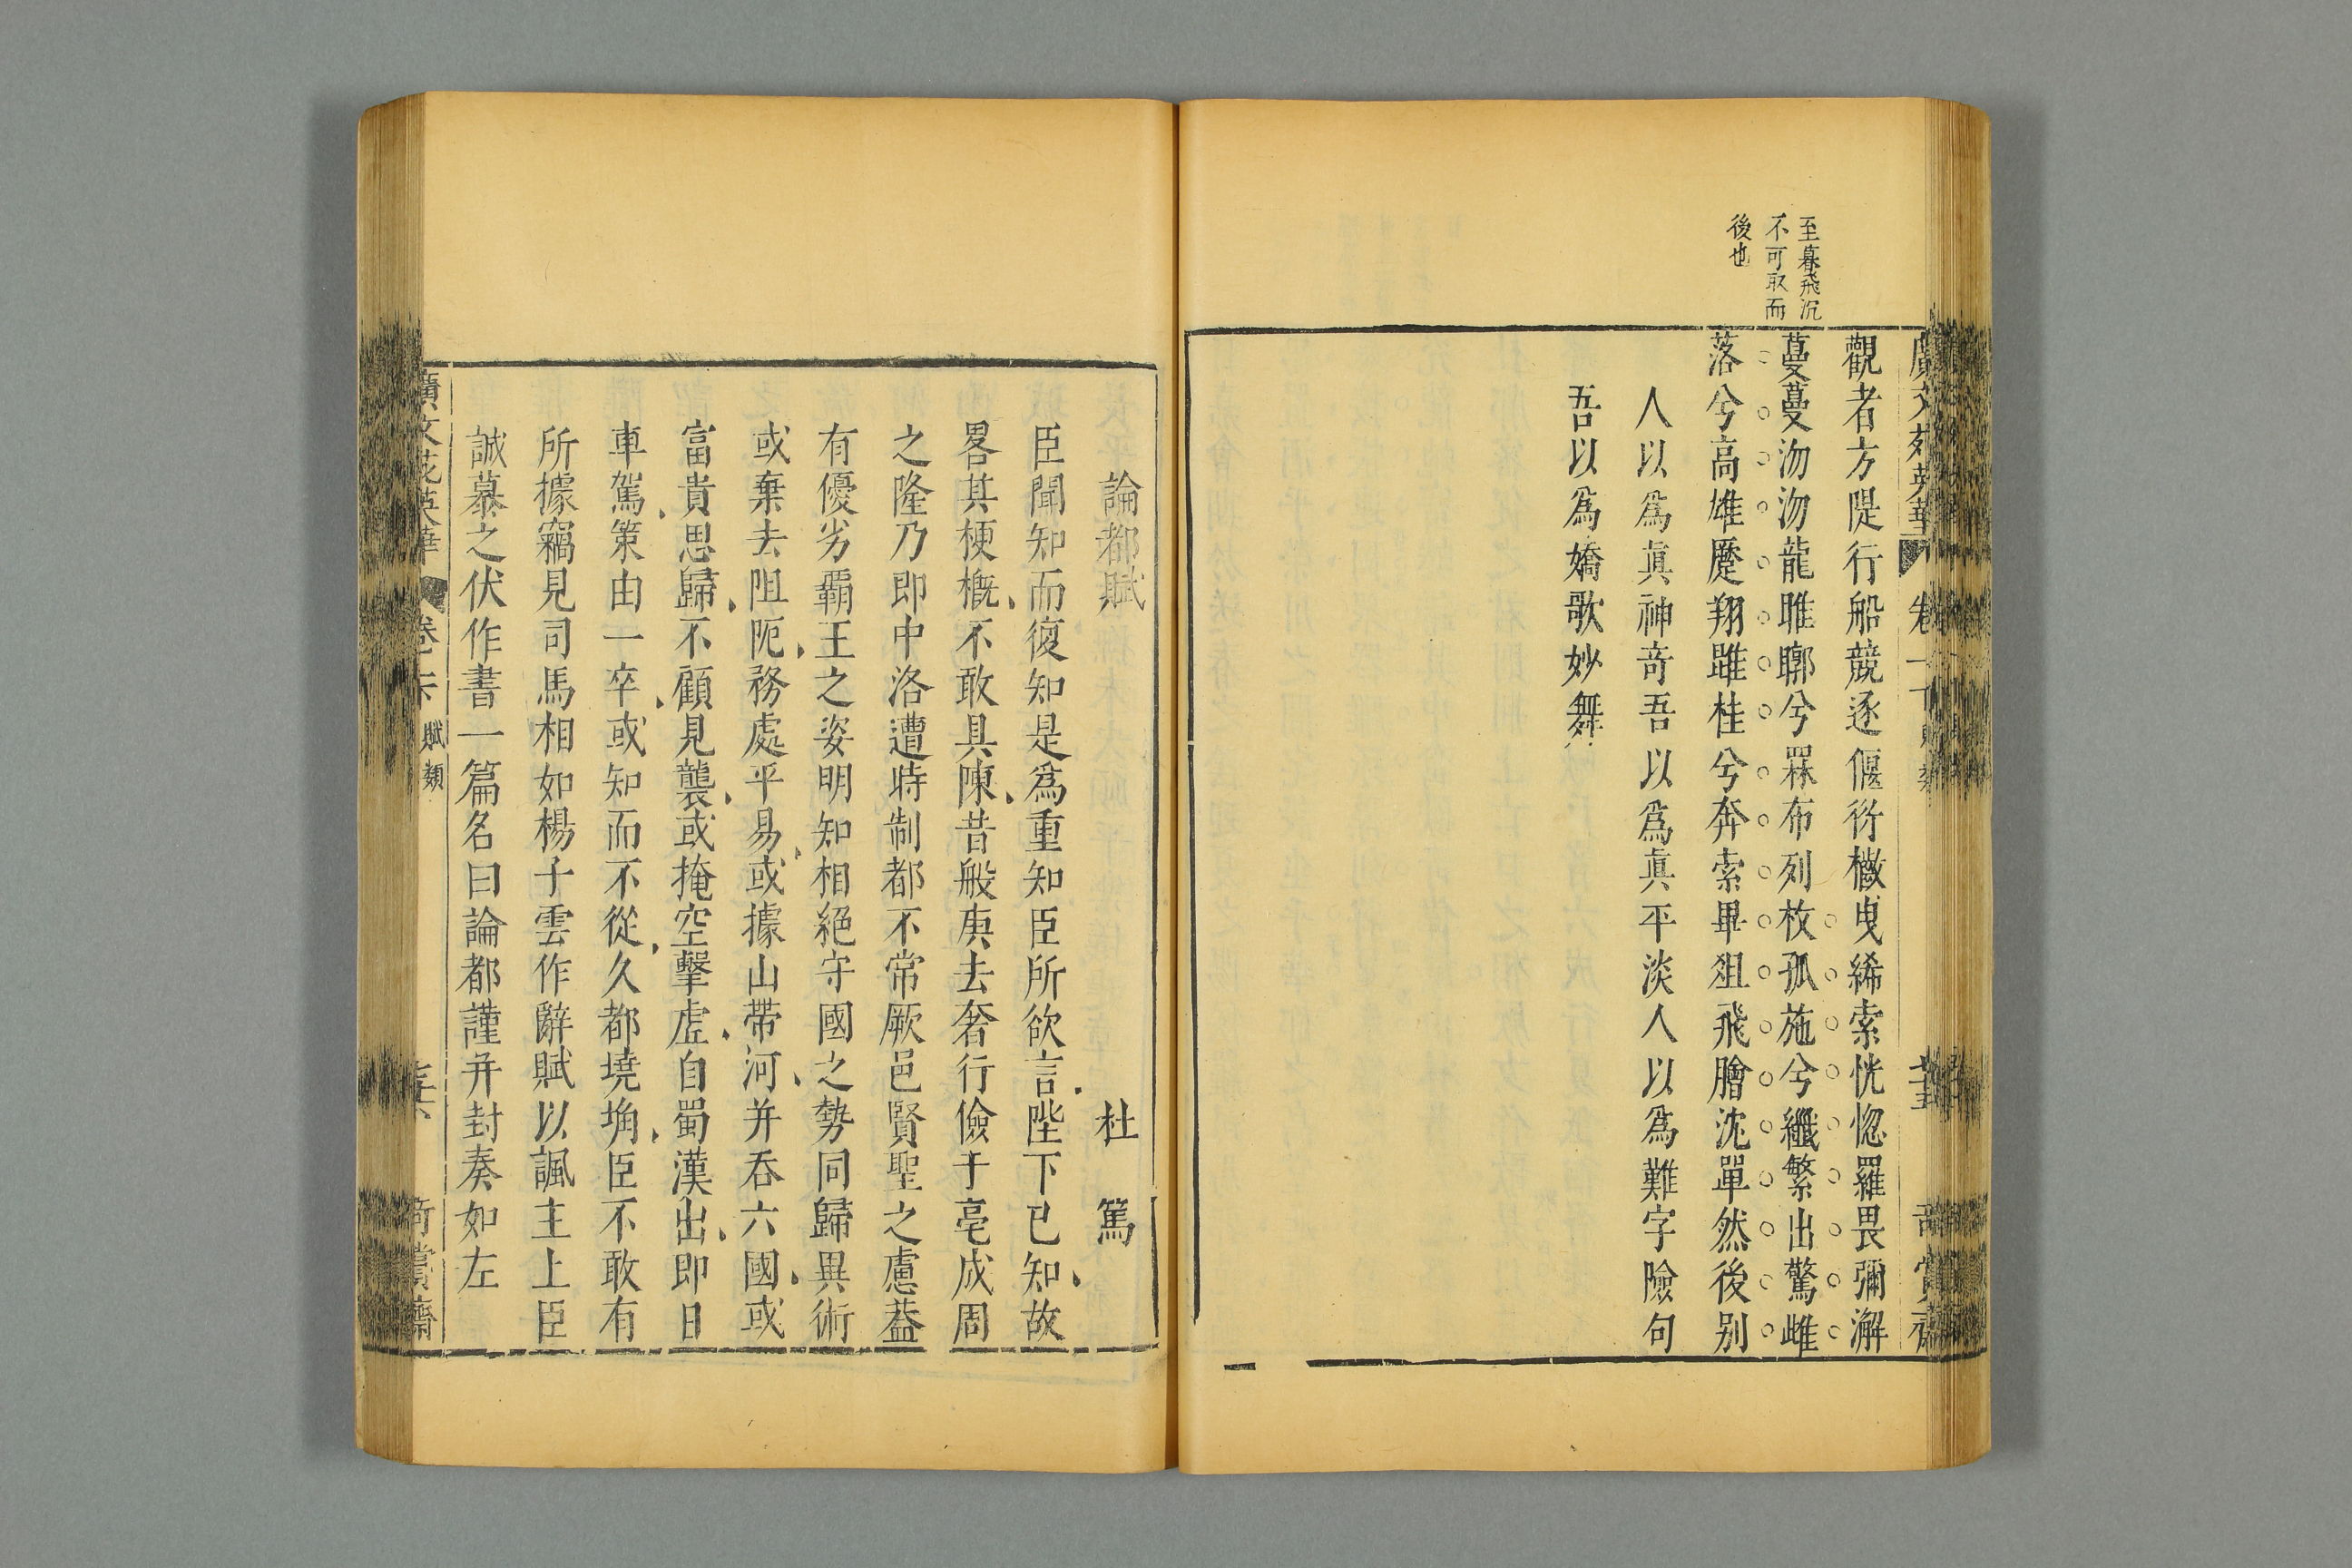 至暮飛沉
不可取而
後也
觀者方隄行船競逐偃衍檝曳絺索恍惚羅畏彌澥
蔓蔓沕沕龍睢聊兮罧布列枚孤施兮纖繁出驚雌
落兮高雄蹷翔雎桂兮奔縈畢爼飛膾沈單然後別
人以爲眞神奇吾以爲眞平淡人以爲難字險句
吾以爲嬌歌妙舞
論都賦 杜篤
臣聞知而復知是爲重知臣所欲言陛下已知故
畧其梗槪不敢具陳昔般庚去奢行儉于亳成周
之隆乃即中洛遭時制都不常厥邑賢聖之慮葢
有優劣霸王之姿明知相絕守國之勢同歸異術
或棄去阻阨務處平易或據山帶河并吞六國或
富貴思歸不顧見襲或掩空擊虛自蜀漢出即日
車駕策由一卒或知而不從久都墝埆臣不敢有
所據竊見司馬相如楊子雲作辭賦以諷主上臣
誠慕之伏作書一篇名曰論都謹并封奏如左
廣文苑英華 卷 賦類